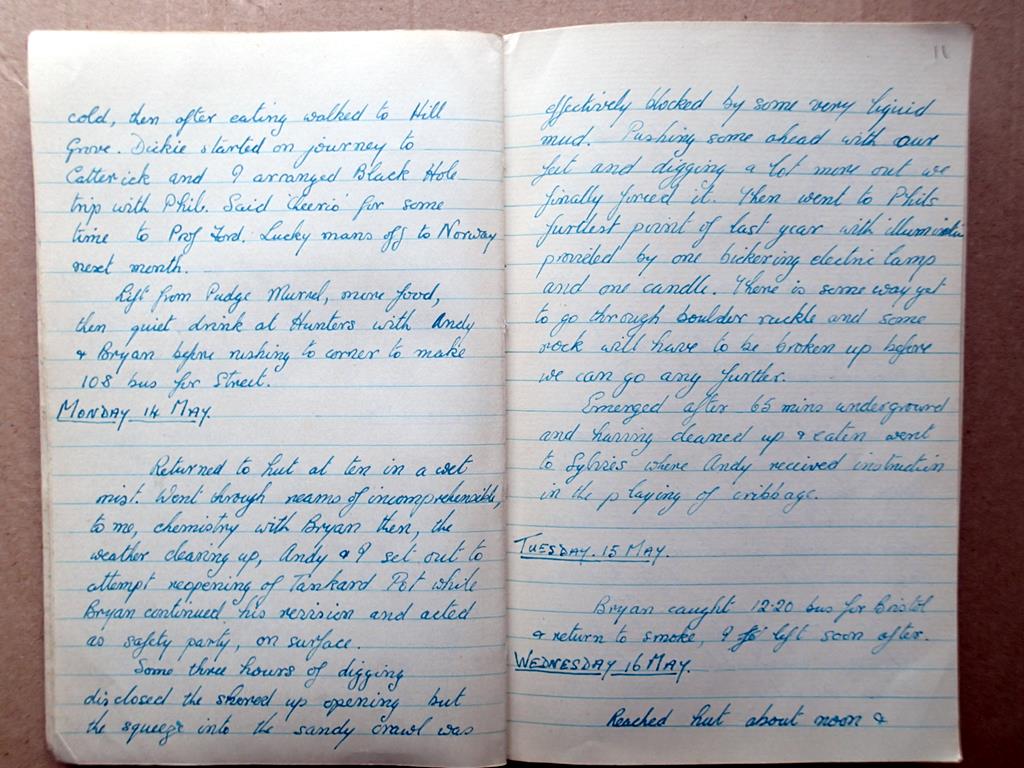 cold, then after eating walked to Hill
Grove. Dickie started on journey to
Catterick and I arranged Black Hole
trip with Phil. Said 'cheerio' for some
time to Prof Tord. Lucky mans off to Norway
next month.
Lift from Pudge Murrel, more food,
then quiet drink at Hunters with Andy
& Bryan before rushing to corner to make
108 bus for Street.
MONDAY 14 MAY.
Returned to hut at ten in a wet
mist. Went through reams of incomprehensible,
to me, chemistry with Bryan then, the
weather clearing up, Andy & I set out to
attempt reopening of Tankard Pot while
Bryan continued his revision and acted
as safety party, on surface.
Some three hours of digging
disclosed the shored up opening but
the squeeze into the sandy crawl was
11
effectively blocked by some very liquid
mud. Pushing some ahead with our
feet and digging a lot more out we
finally forced it. Then went to Phils
furthest point of last year with illumination
provided by one bickering electric lamp
and one candle. There is some way yet
to go through boulder ruckle and some
rock will have to be broken up before
we can go any further.
Emerged after 65 mins underground
and having cleaned up & eaten went
to Sylvies where Andy received instruction
in the playing of cribbage.
TUESDAY. 15 MAY.
Bryan caught 12.20 bus for Bristol
& return to smoke, I left soon after.
WEDNESDAY 16 MAY.
Reached hut about noon &